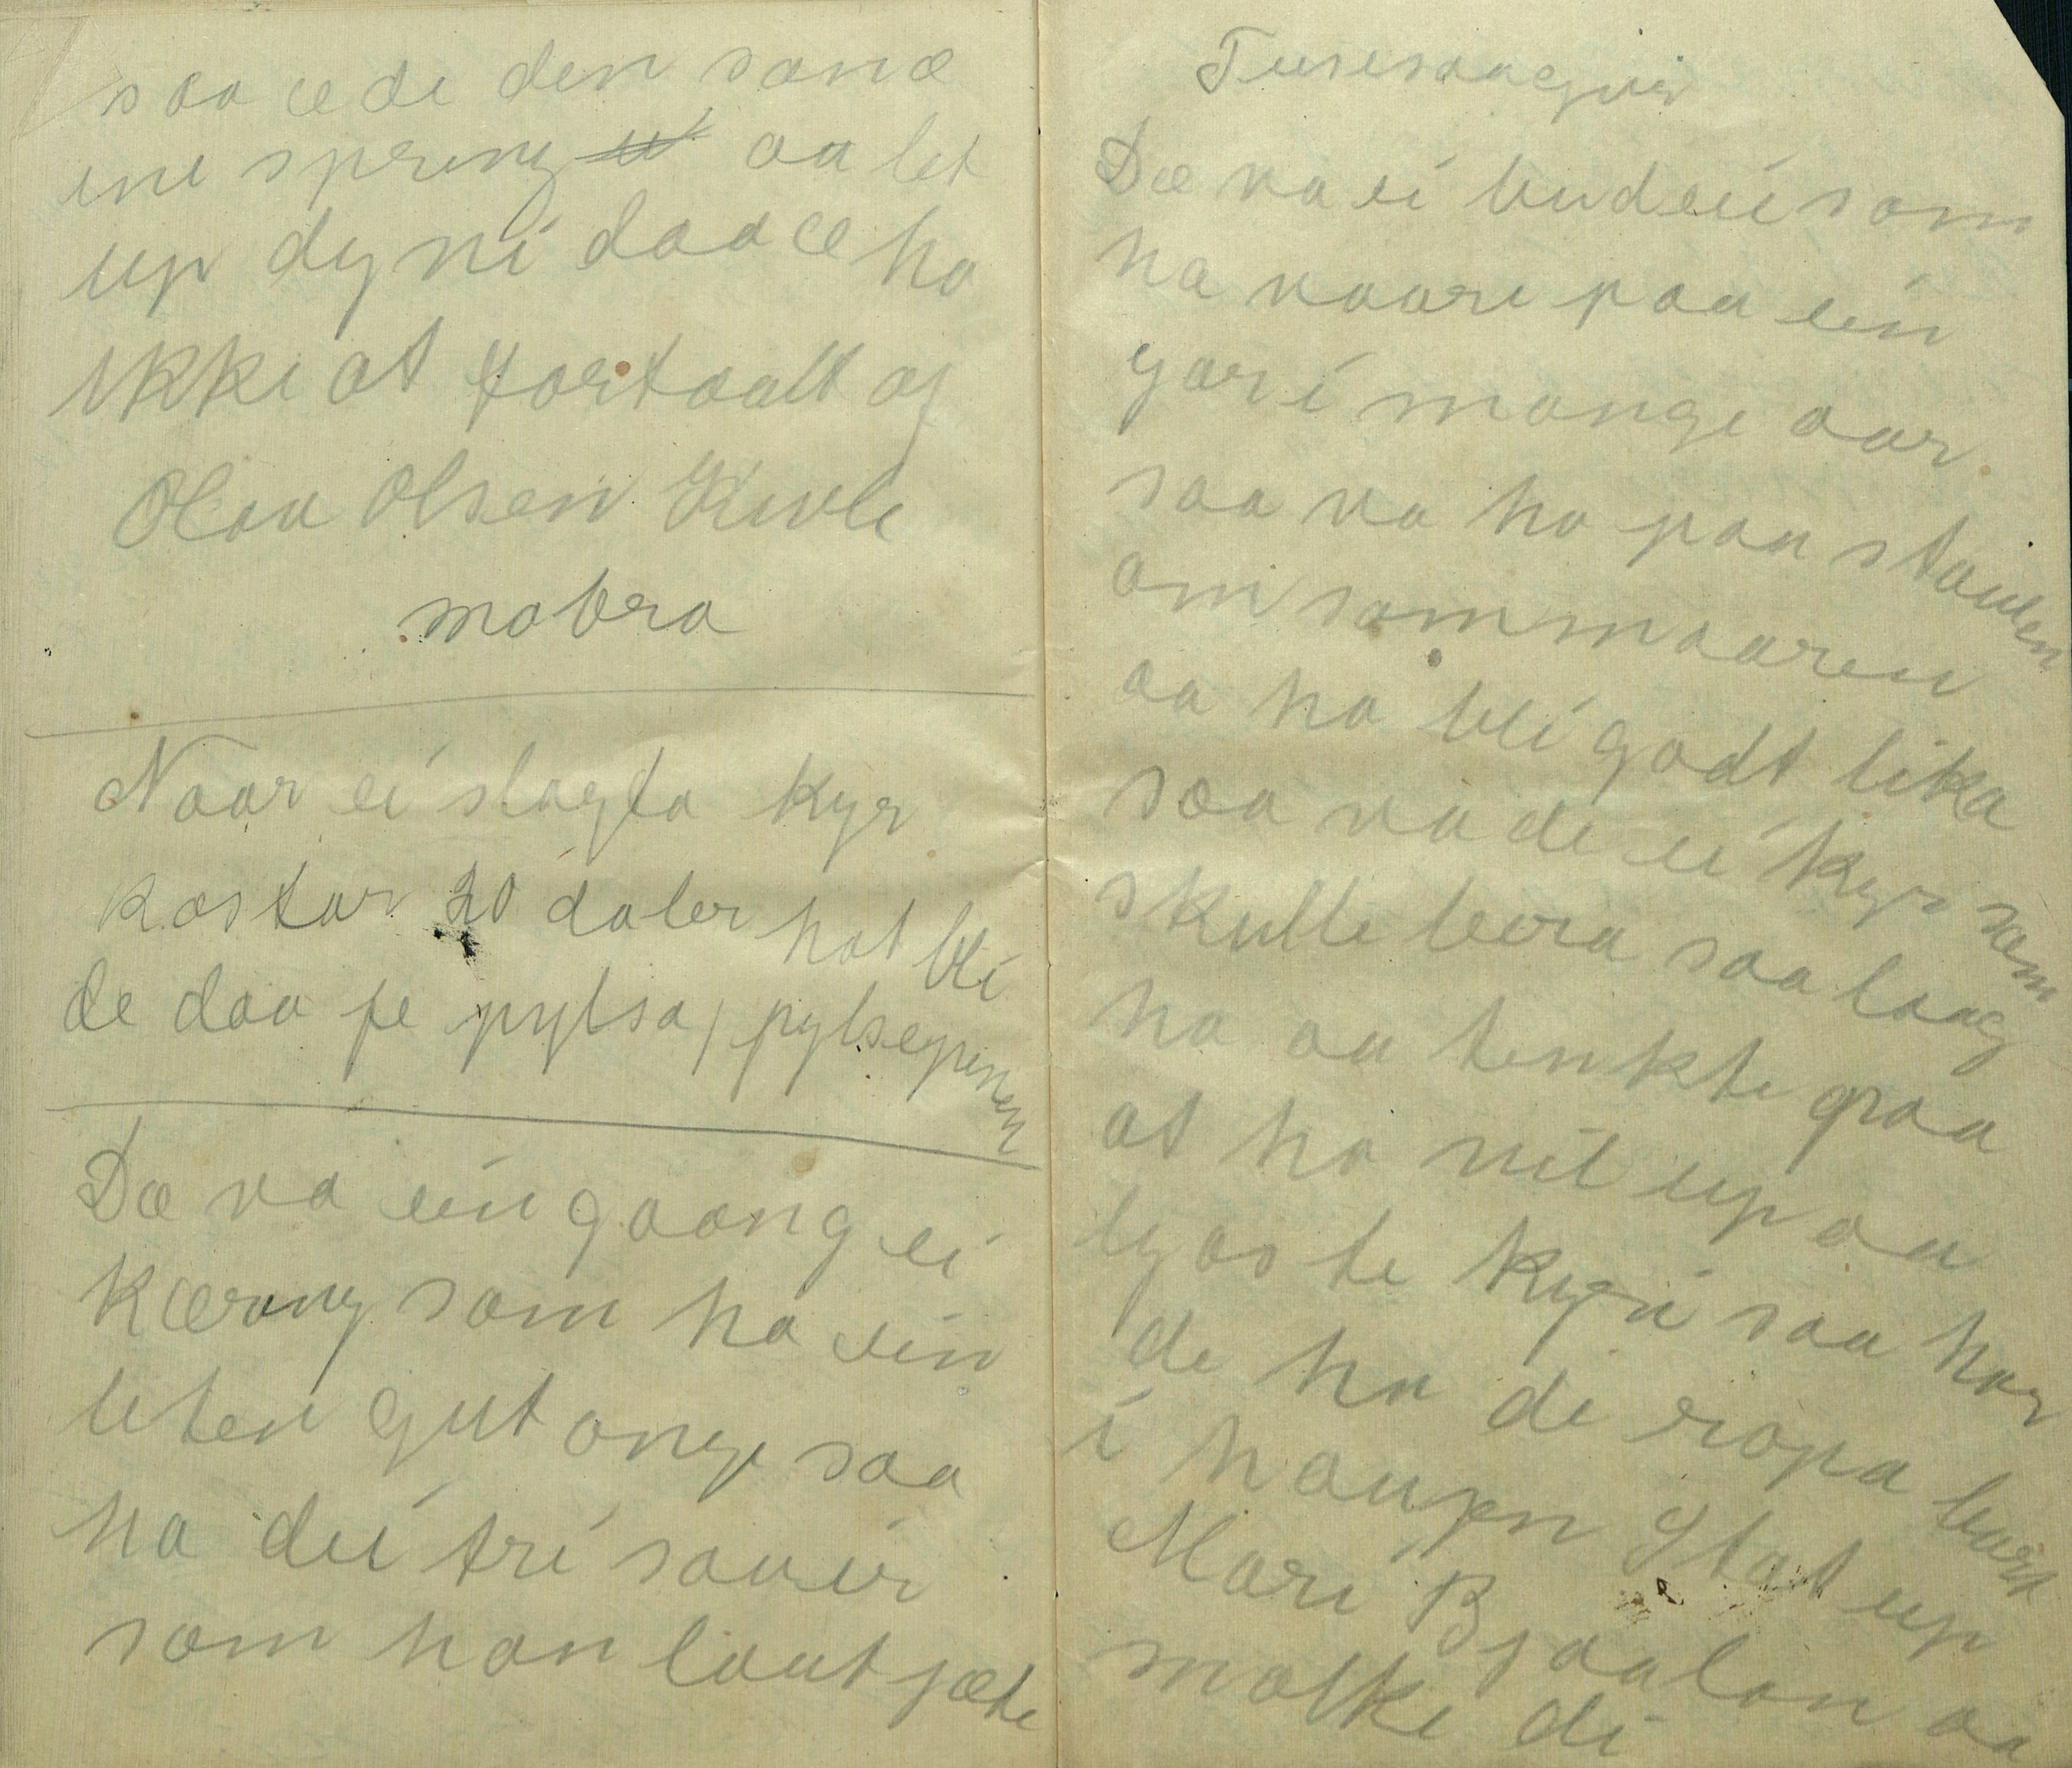 saa æ de den sanæ
ene spring aa let
up dyni daa æ ho
ikki at fortaalt af
Olaa Olsen Kivle
mobra
Naar ei slagta kyr
kostar 20 daler hot bli
de daa fe pylsa, pylsepinen
Dæ va ein gaang ei
kærong som ha ein
liten gut onge saa
ha dei tri sauir
som han laut jæte
Tusesaagnir
Dæ va ei budeii som
ha vaare paa ein
gar i mange aar
saa va ho paa staulen
om sommaaren
aa ho blei godt lika
saa va de ei kyr som
skulle bera saa laag
ho aa tenkte paa
at ho vil up aa
lyos te kyni saa hor
de ho di ropa burt
i haugen Stat up
Mari Bjaalan aa
molke di